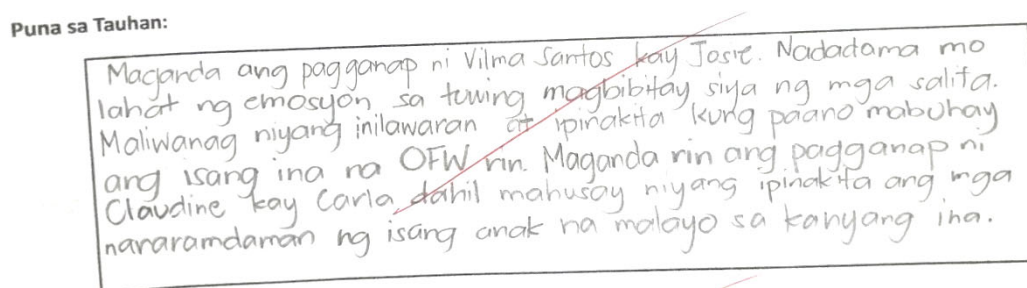 Puna sa Tauhan:
Maganda ang pagganap ni Vilma Santos kay Josie. Nadadama mo
lahat ng emosyon sa tuwing magbibitay siya ng mga salita.
Maliwanag niyang inilawaran at ipinakita kung paano mabuhay
ang isang ina na OFW rin. Maganda rin ang padgganap ni
Claudine kay Carla dahil mahusay niyang ipinakita ang mga
nararamdaman ng isang anak na malayo sa kanyang ina.